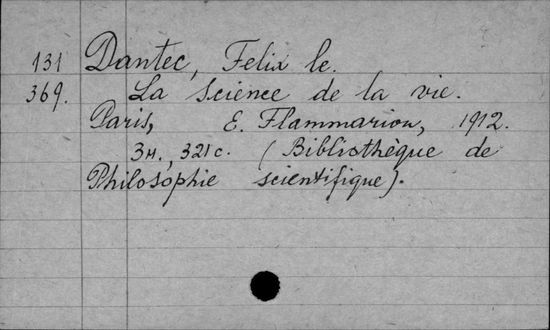 131 Dantec, Felix le.
369. La Science de la vie.
Paris, E. Flammarion, 1912.
3н., 321с. (Bibliothèque de
Philosophie scientifique).